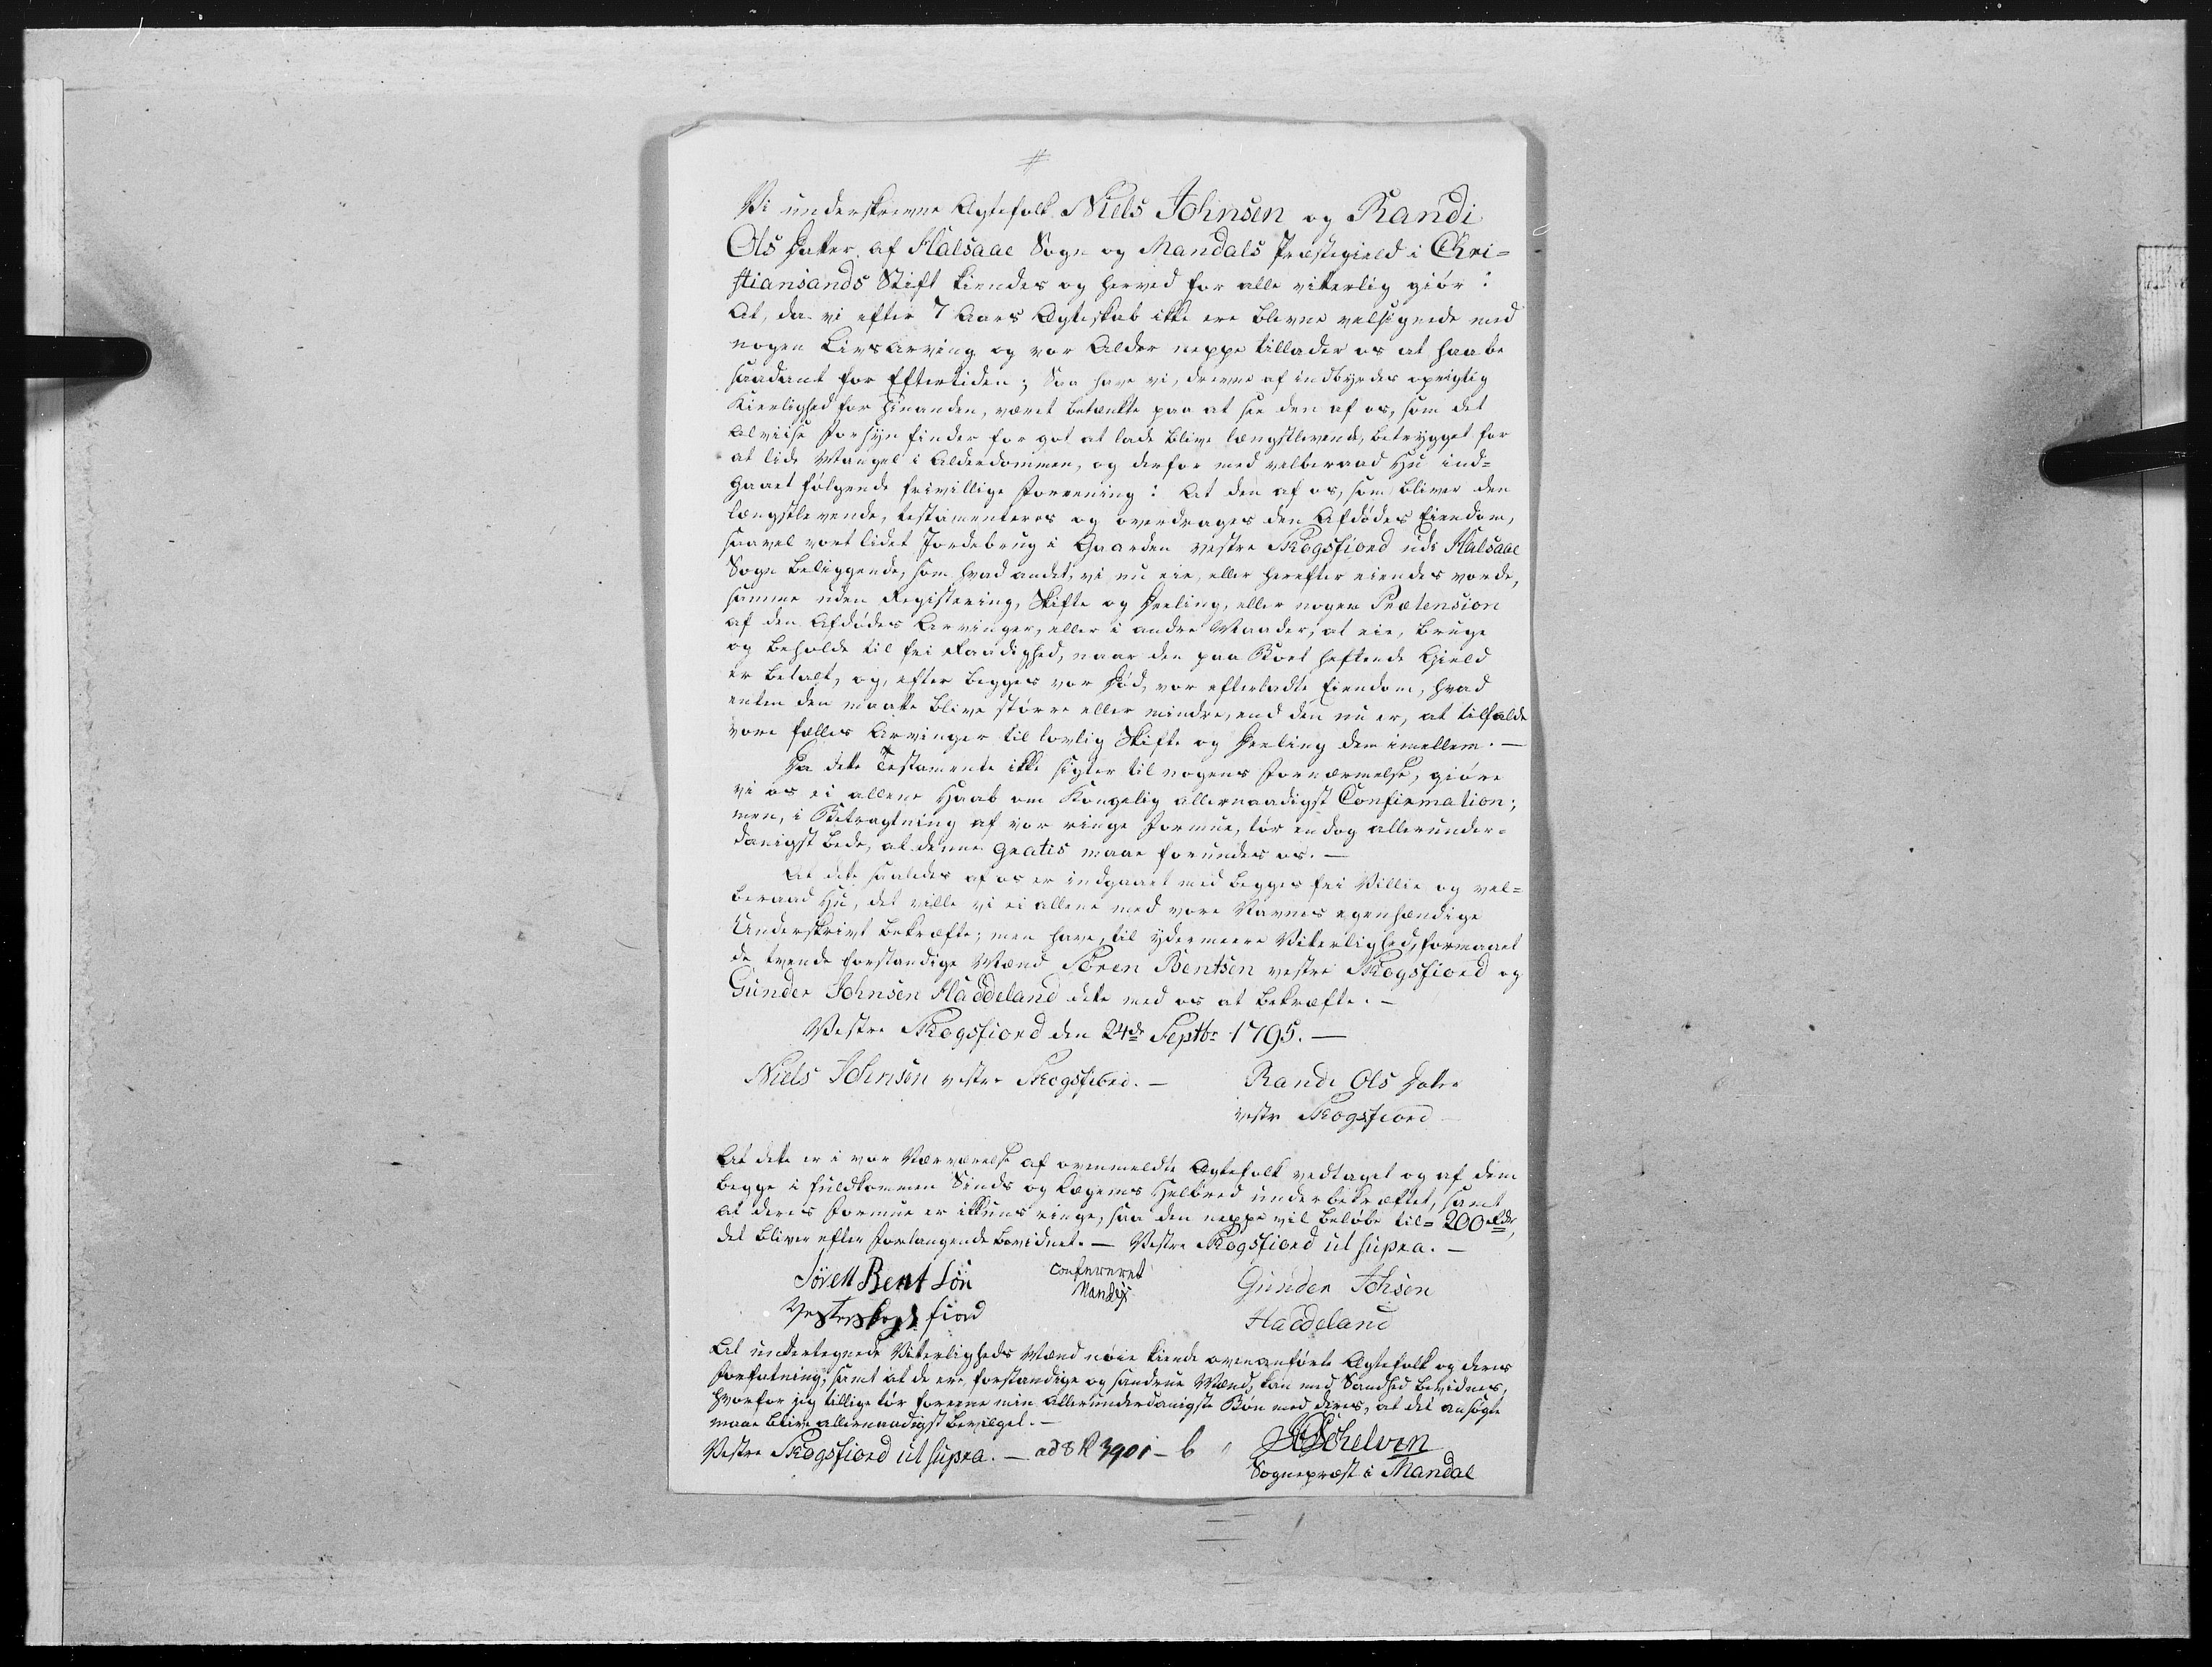 Vi underskrevne Ægtefolk Niels Johnsen og Randi
Ols Datter af Halsaae Sogn og Mandals Præstegield i Chri=
stiansands Stift kiendes og herved for alle vitterlig giør:
At, da vi efter 7 Aars Ægteskab ikke ere blevne velsignede med
nogen Livsarving og vor Alder neppe tillader os at haabe
saadant for Eftertiden; Saa have vi, drevne af indbyrdes oprigtig
Kierlighed for hinanden, været betænkte paa at see den af os, som det
alviise Forsyn finder for got at lade blive længstlevende, betrygget for
at lide Mangel i Alderdommen, og derfor med velberaad Hu ind=
gaaet følgende frivillige Forening: At den af os, som bliver den
længstlevende, testamenteres og overdrages den Afdødes Eiendom,
saavel vort lidet Jordebrug i Gaarden vestre Skogsfiord udi Halsaae
Sogn beliggende, som hvad andet, vi nu eie, eller herefter eiendes vorde,
samme uden Registering, Skifte og Deeling, eller nogen Prætension
af den Afdødes Arvinger, eller i andre Maader, at eie, bruge
og beholde til fri Raadighed, naar den paa Boet heftende Gield
er betalt, og, efter begges vor Død, vor efterladte Eiendom, hvad
enten den maatte blive større eller mindre, end den nu er, at tilfalde
vore fælles Arvinger til lovlig Skifte og Deeling dem imellem. —
Da dette Testamente ikke sigter til nogens Fornærmelse, giøre
vi os ei allene Haab om Kongelig allernaadigst Confirmation;
men, i Betragtning af vor ringe Formue, tør endog allerunder=
danigst bede, at denne gratis maae forundes os. —
At dette saaledes af os er indgaaet med begges fri Villie og vel=
beraad Hu, det ville vi ei allene med vore Navnes egenhændige
Underskrivt bekræfte; men have, til ydermeere Vitterlighed, formaaet
de tvende forstandige Mænd Søren Bentsen vestre Skogsfiord og
Gunder Johnsen Haddeland dette med os at bekræfte. —
Vestre Skogsfiord den 24de Septbr 1795. —
Niels Johnsen vestre Skogsfiord. —
Randi Ols Datter
vestre Skogsfiord
At dette er i vor Nærværelse af ovenmeldte Ægtefolk vedtaget og af dem
begge i fuldkommen Sinds og Legems Helbred underbekræftet, samt
at deres Formue er ikkuns ringe, saa den neppe vil beløbe til 200 Rdr,
det bliver efter Forlangende bevidnet. — Vestre Skogsfiord ut supra. —
Søren Bent Søn
Vesterskogsfiord
confereret
Gunder Johsen
Haddeland
At undertegnede Vitterligheds Mænd nøie kiende ovenanførte Ægtefolk og deres
Forfatning, samt at de ere forstandige og sandrue Mænd, kan med Sandhed bevidnes,
hvorfor jeg tillige tør forene min allerunderdanigste Bøn med deres, at det ansøgte
maae blive allernaadigst bevilget. —
Vestre Skogsfiord ut supra. — ad 8 R 3901 - b
Schelven
Sognepræst i Mandal